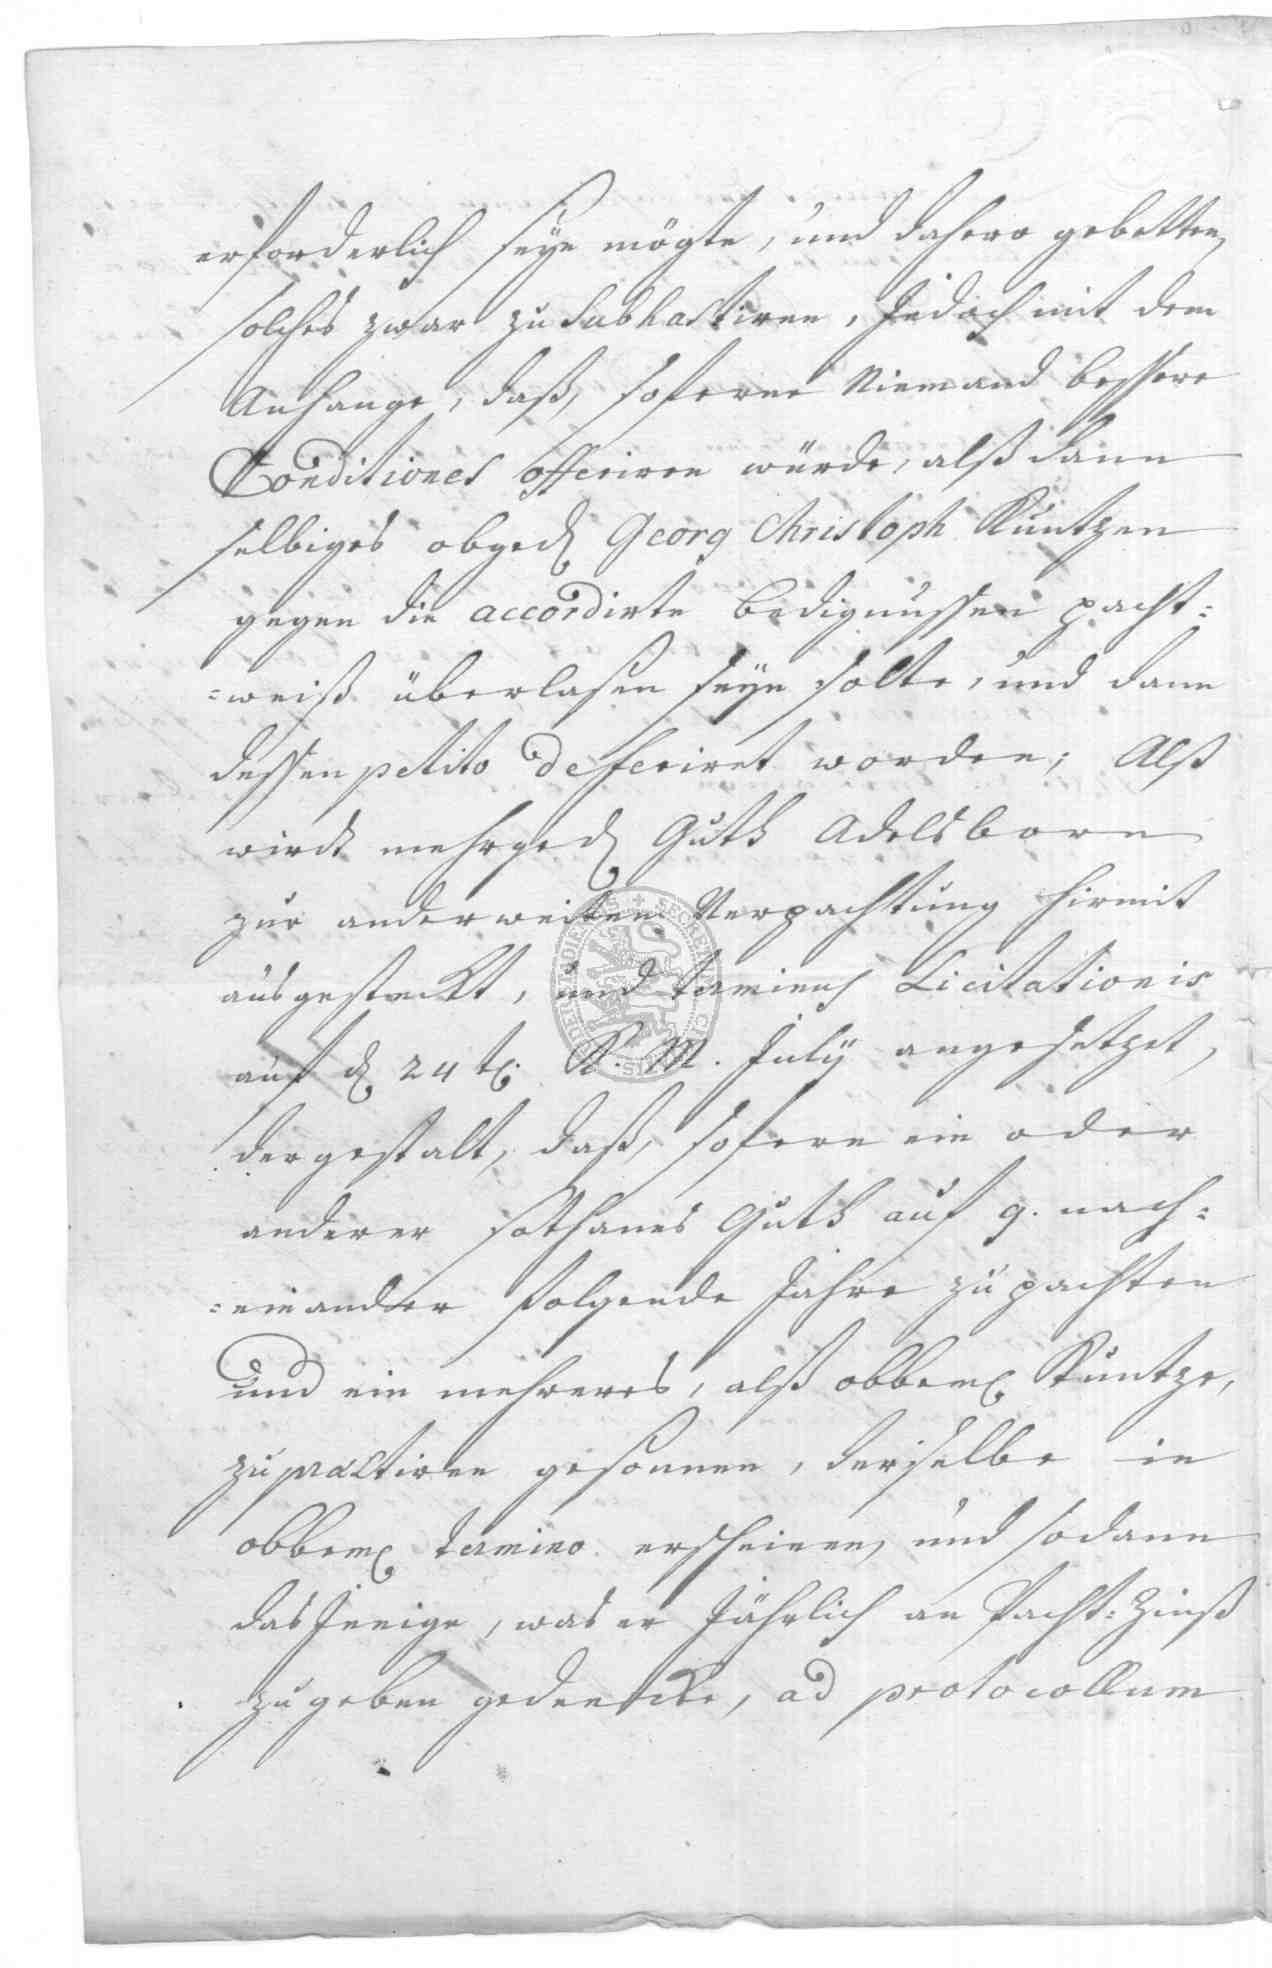 erforderlich seyn mögte, und dahero gebetten,
solches zwar zu Subhastiren, Jedoch mit dem
Anhange, daß, soferne Niemand bessere
Conditiones offeriren würde, alß dann
selbiges obged. Georg Christoph Kuntzen
gegen die accordirte bedignussen pacht=
=weiß überlaßen seyn solte, und dann
dessen petito defferiret worden; Alß
wirdt mehrged. Guth Adelsborn
zur anderweiten Verpachtung hirmit
ausgesteckt, und terminus Licitationis
auf d. 24 t. M. July angesetzet,
dergestalt, daß, sofern ein oder
anderer sothanes Guth auf 9. nach=
=einander folgende Jahre zu pachten
und ein mehreres, alß obbem. Kuntze,
zu præstiren gesonnen, derselbe in
obbem. termino erscheinen, und sodann
dasJenige, was er Jährlich an Pacht=Zinß
zu geben gedencke, ad protocollum